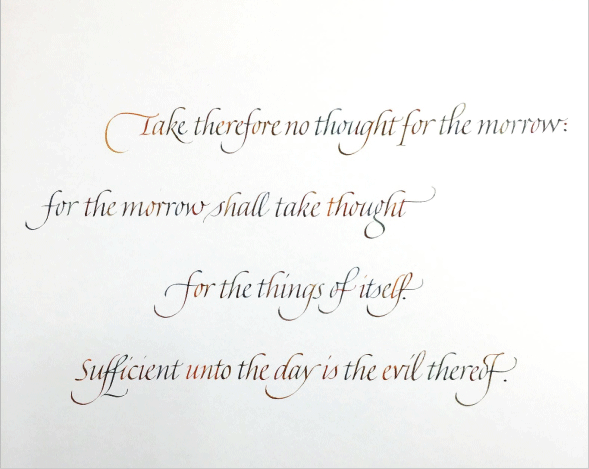 Take therefore no thought for the morrow:
for the morrow shall take thought
for the things of itself.
Sufficient unto the day is the evil thereof.